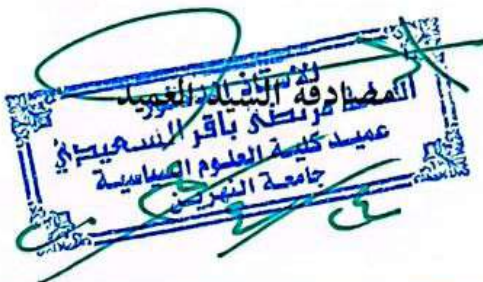 المصادقة السيد العميد
مرتضى باقر السعيدي
عميد كلية العلوم السياسية
جامعة النهرين